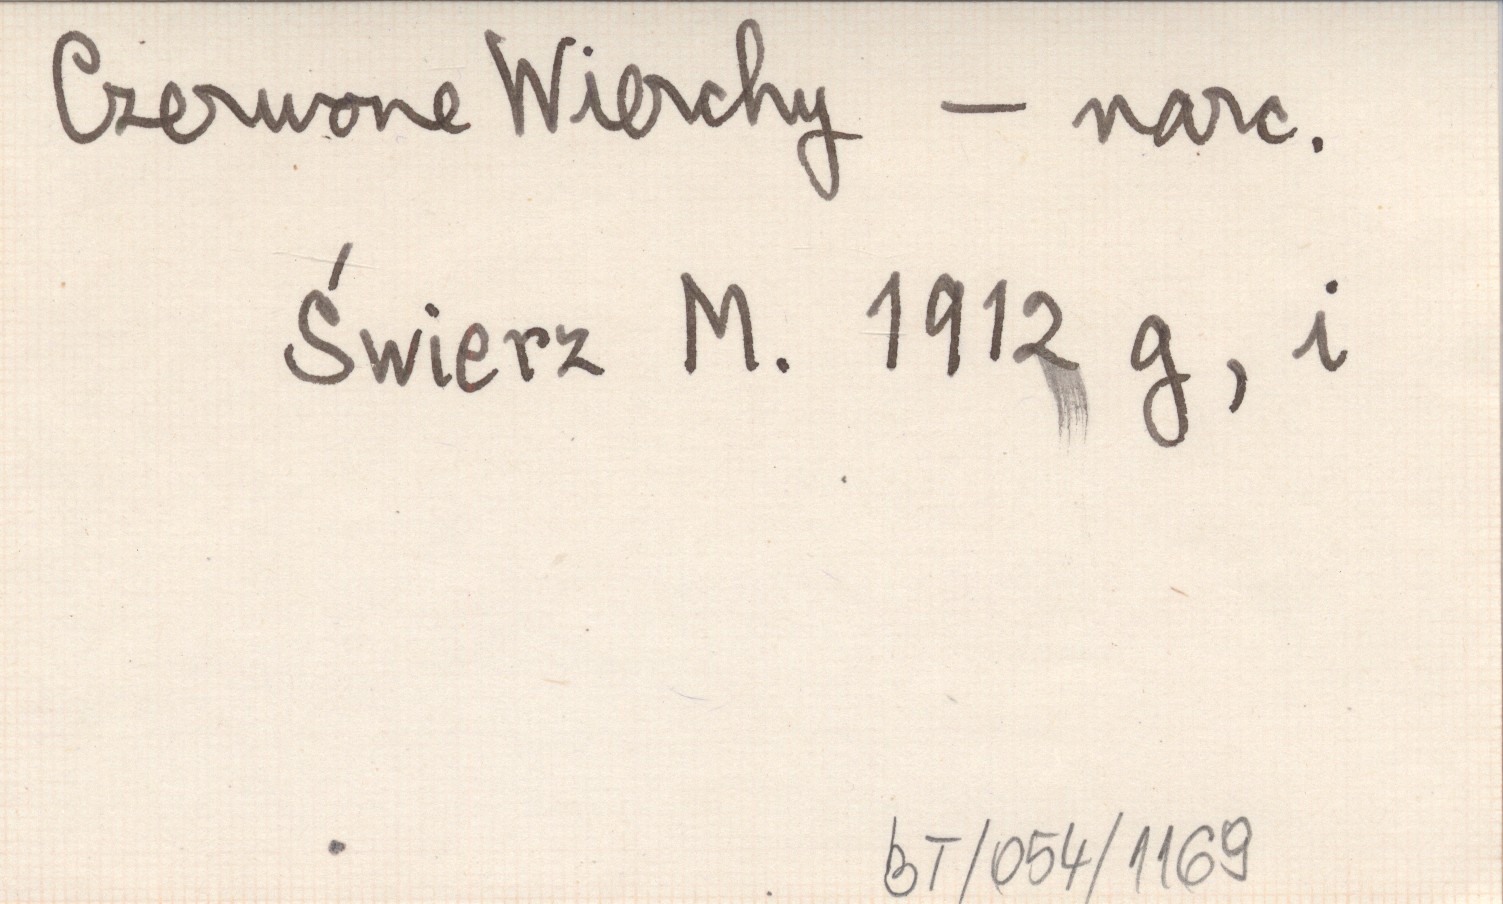 Czerwone Wierchy — narc.
Świerz M. 1912 g, i
BT/054/1169